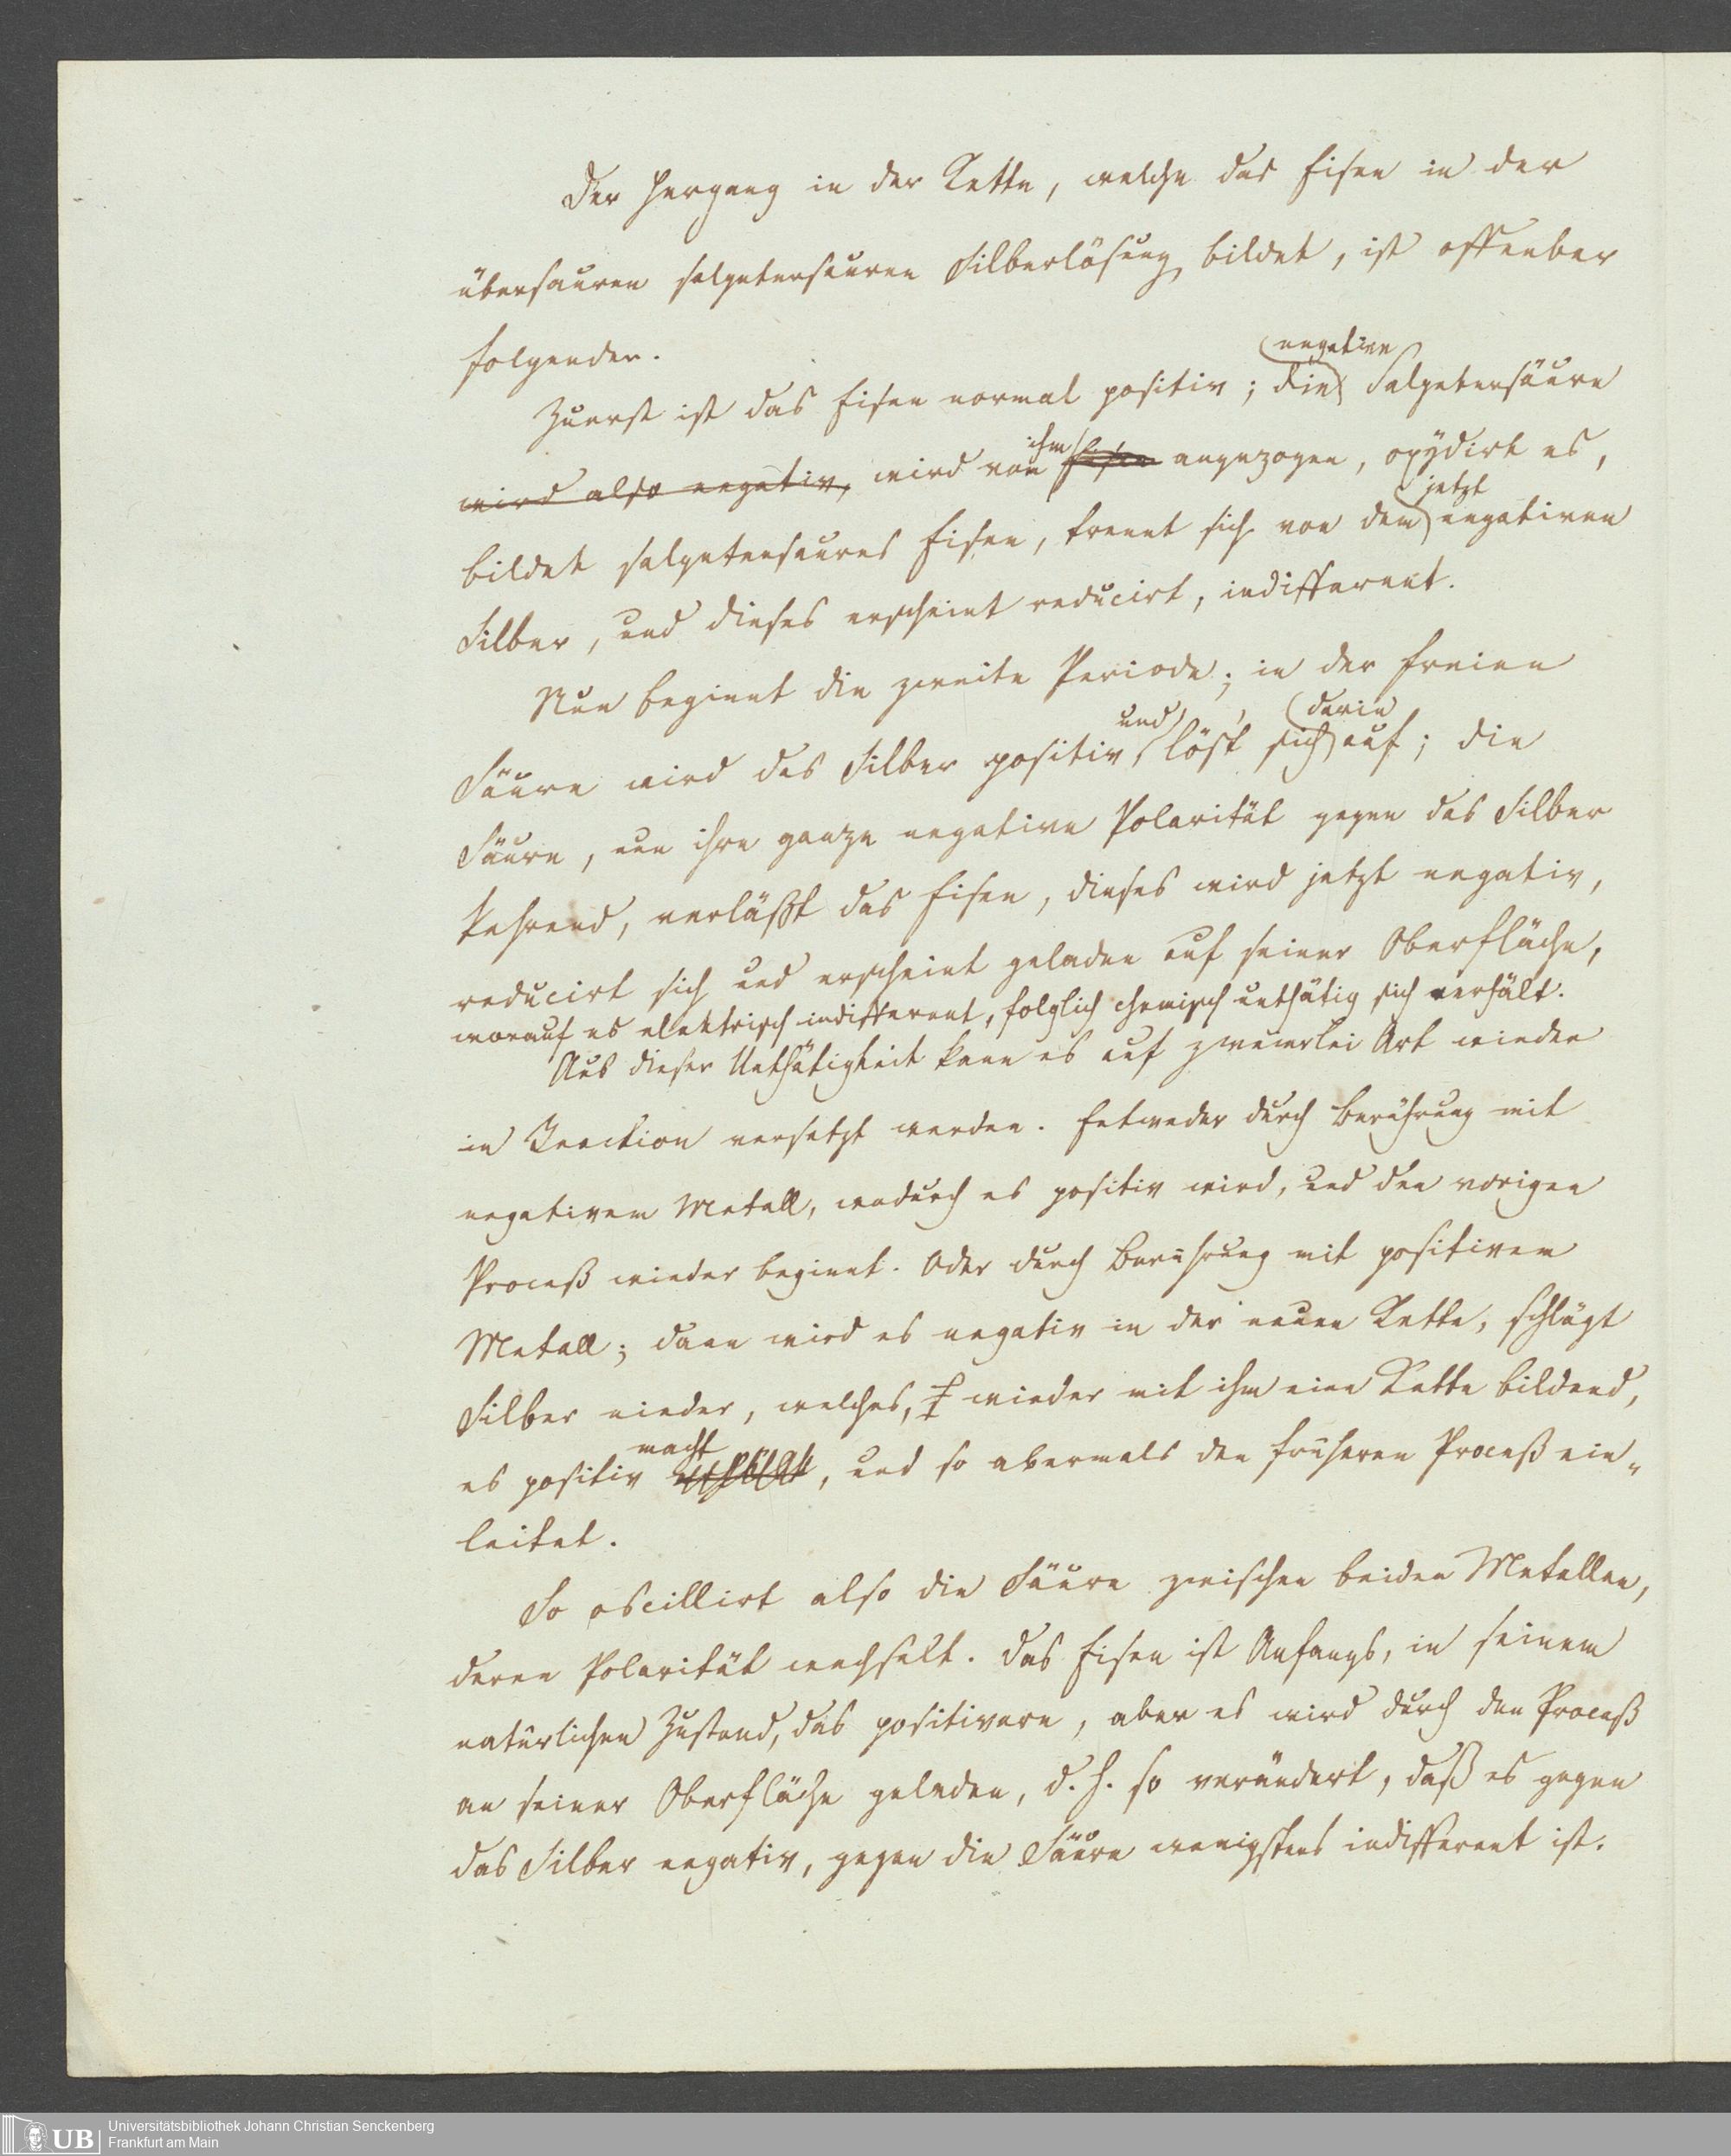 Der Hergang in der Kette, welche das Eisen in der
übersauren salpetersauren Silberlösung bildet, ist offenbar
folgender.
Zuerst ist das Eisen normal positiv; die negative Salpetersäure
wird also negativ, wird von ihm Eisen angezogen, oxydirt es,
bildet salpetersaures Eisen, trennt sich von dem jetzt negativen
Silber, und dieses erscheint reducirt, indifferent.
Nun beginnt die zweite Periode; in der freien
Säure wird das Silber positiv, und löst sich darin auf; die
Säure, nun ihre ganze negative Polarität gegen das Silber
kehrend, verläßt das Eisen, dieses wird jetzt negativ,
reducirt sich und erscheint geladen auf seiner Oberfläche,
worauf es elektrisch indifferent, folglich chemisch unthätig sich verhält.
Aus dieser Unthätigkeit kann es auf zweierlei Art wieder
in Reaction versetzt werden. Entweder durch Berührung mit
negativem Metall, wodurch es positiv wird, und den vorigen
Proceß wieder beginnt. Oder durch Berührung mit positivem
Metall; dann wird es negativ in der neuen Kette, schlägt
Silber nieder, welches, wieder mit ihm eine Kette bildend,
es positiv macht, und so abermals den früheren Proceß ein-
leitet.
So oscillirt also die Säure zwischen beiden Metallen,
deren Polarität wechselt. Das Eisen ist Anfangs, in seinem
natürlichen Zustand, das positivere, aber es wird durch den Proceß
an seiner Oberfläche geladen, d. h. so verändert, daß es gegen
das Silber negativ, gegen die Säure wenigstens indifferent ist.
UB Universitätsbibliothek Johann Christian Senckenberg
Frankfurt am Main